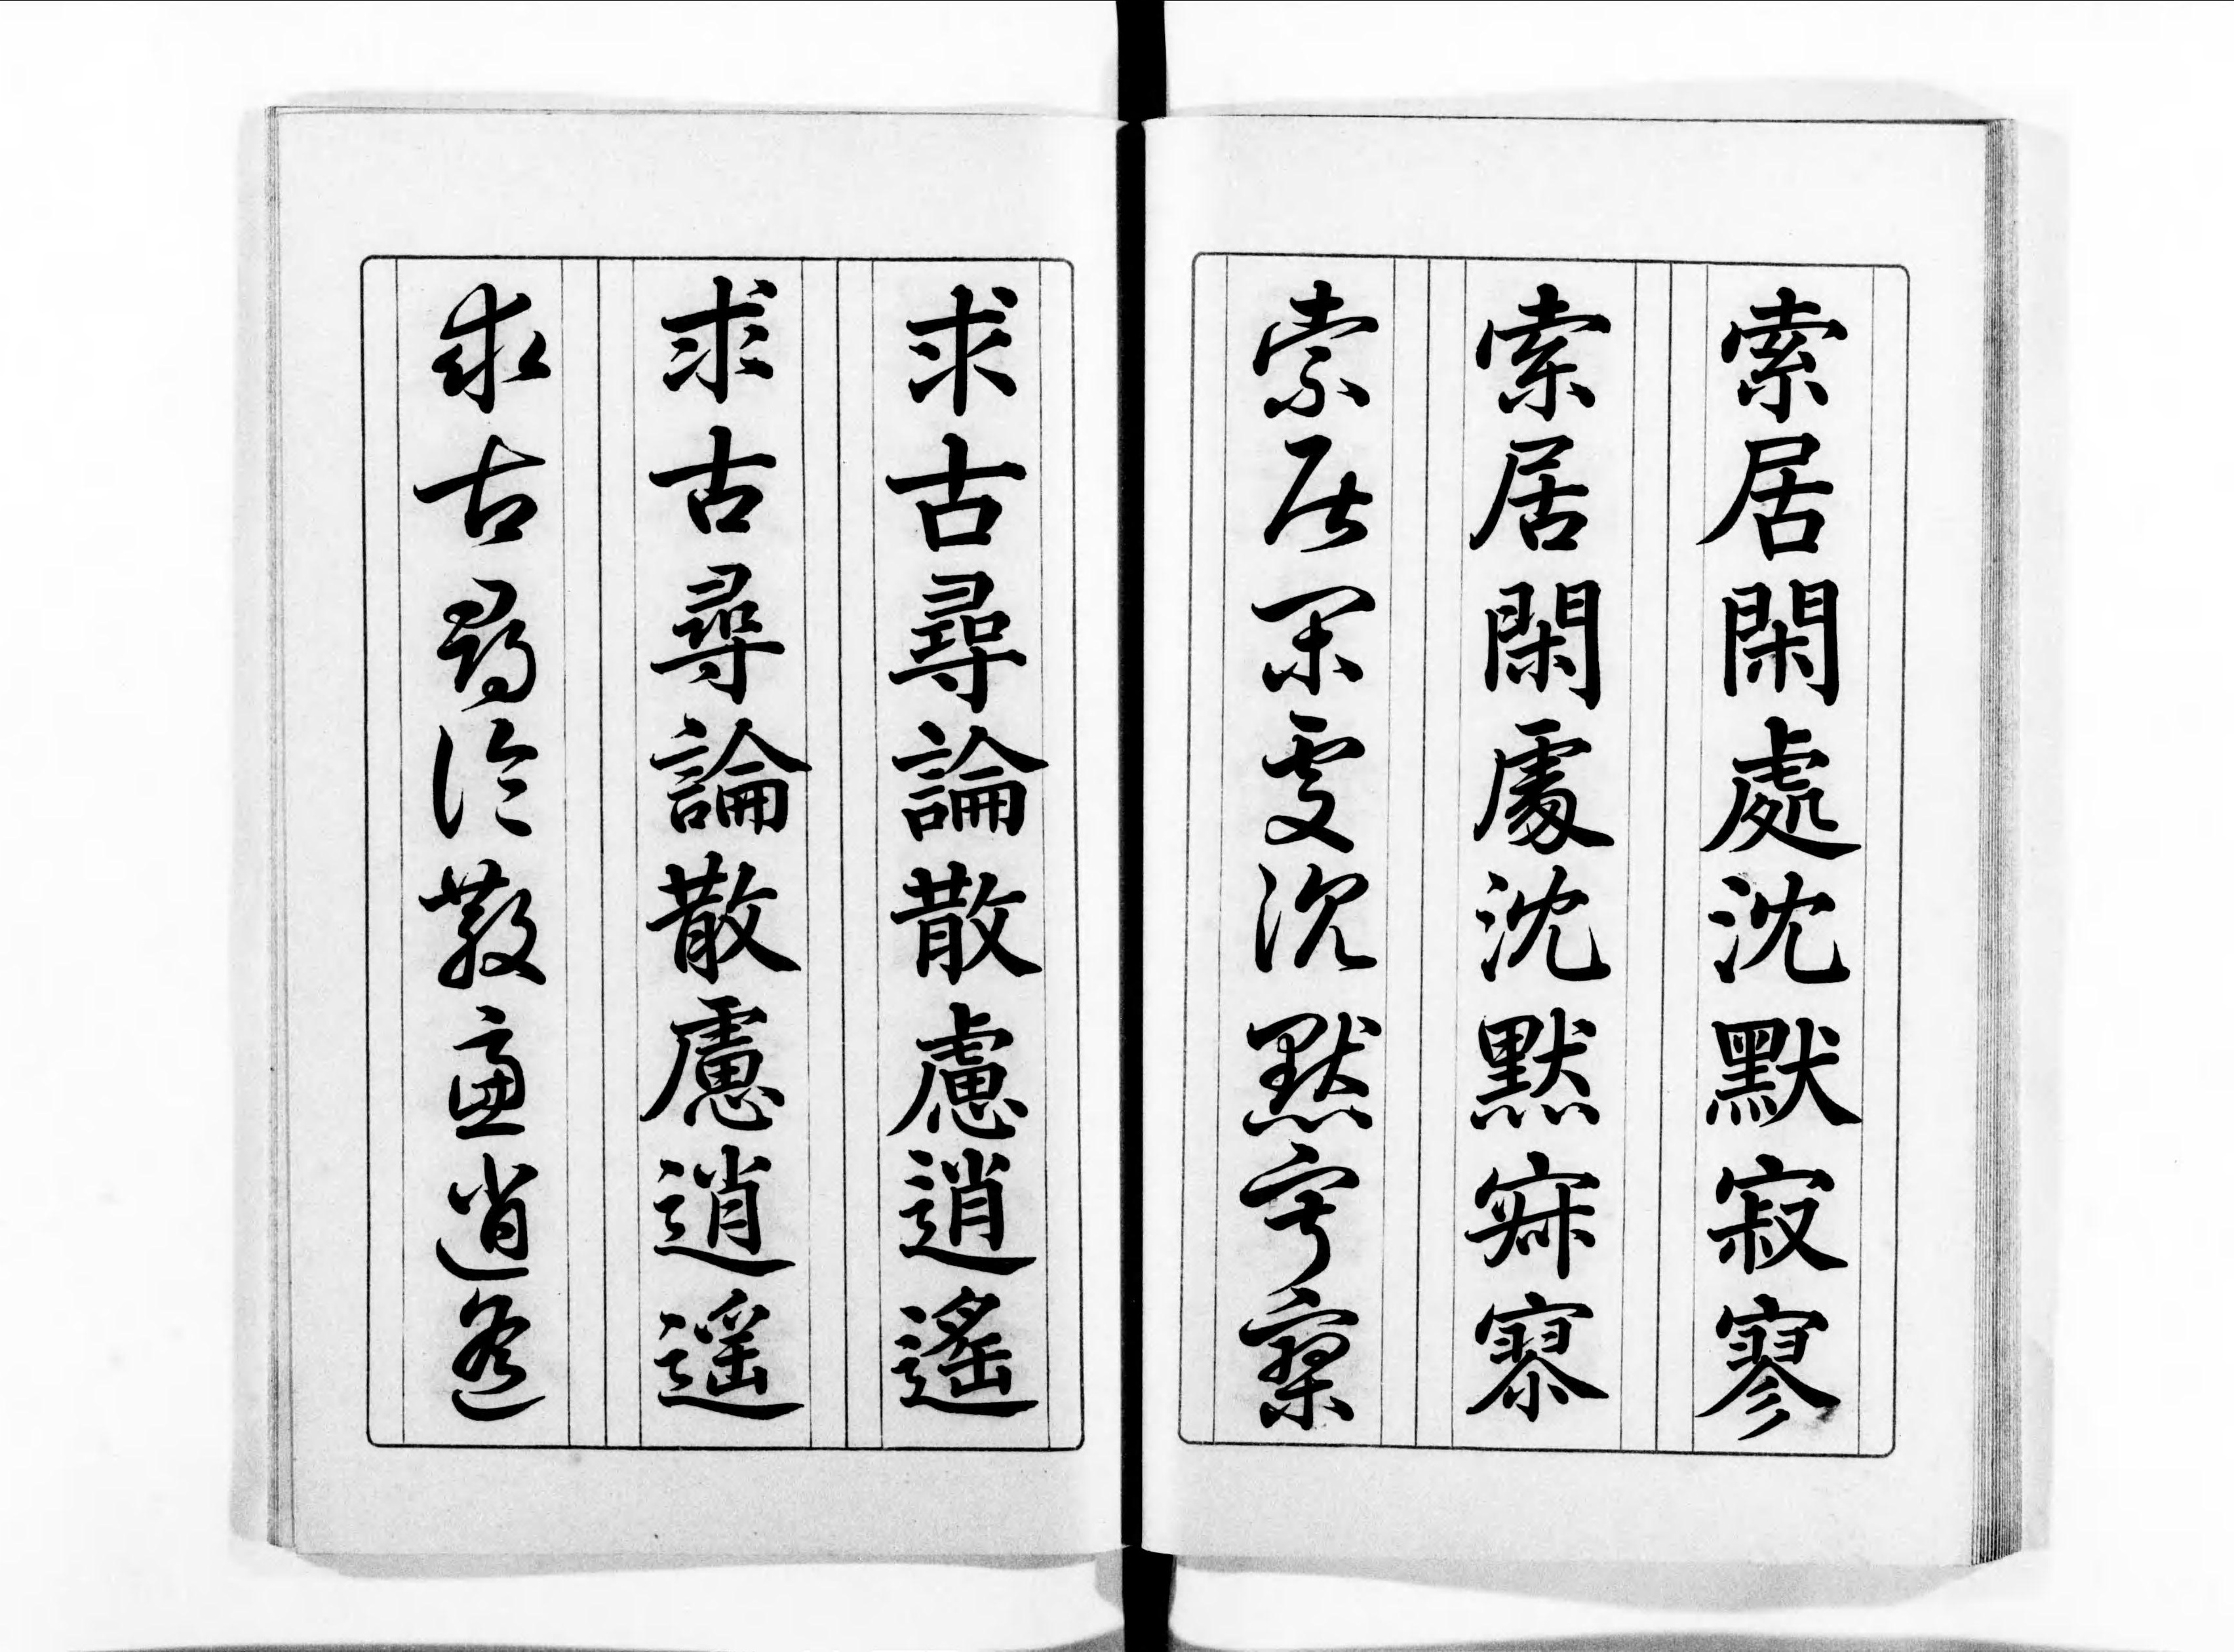 索居閑處沈默寂寥
索居閑處沈默寂寥
索居閑處沈默寂寥
求古尋論散慮逍遙
求古尋論散慮逍遥
求古尋論散慮逍遙